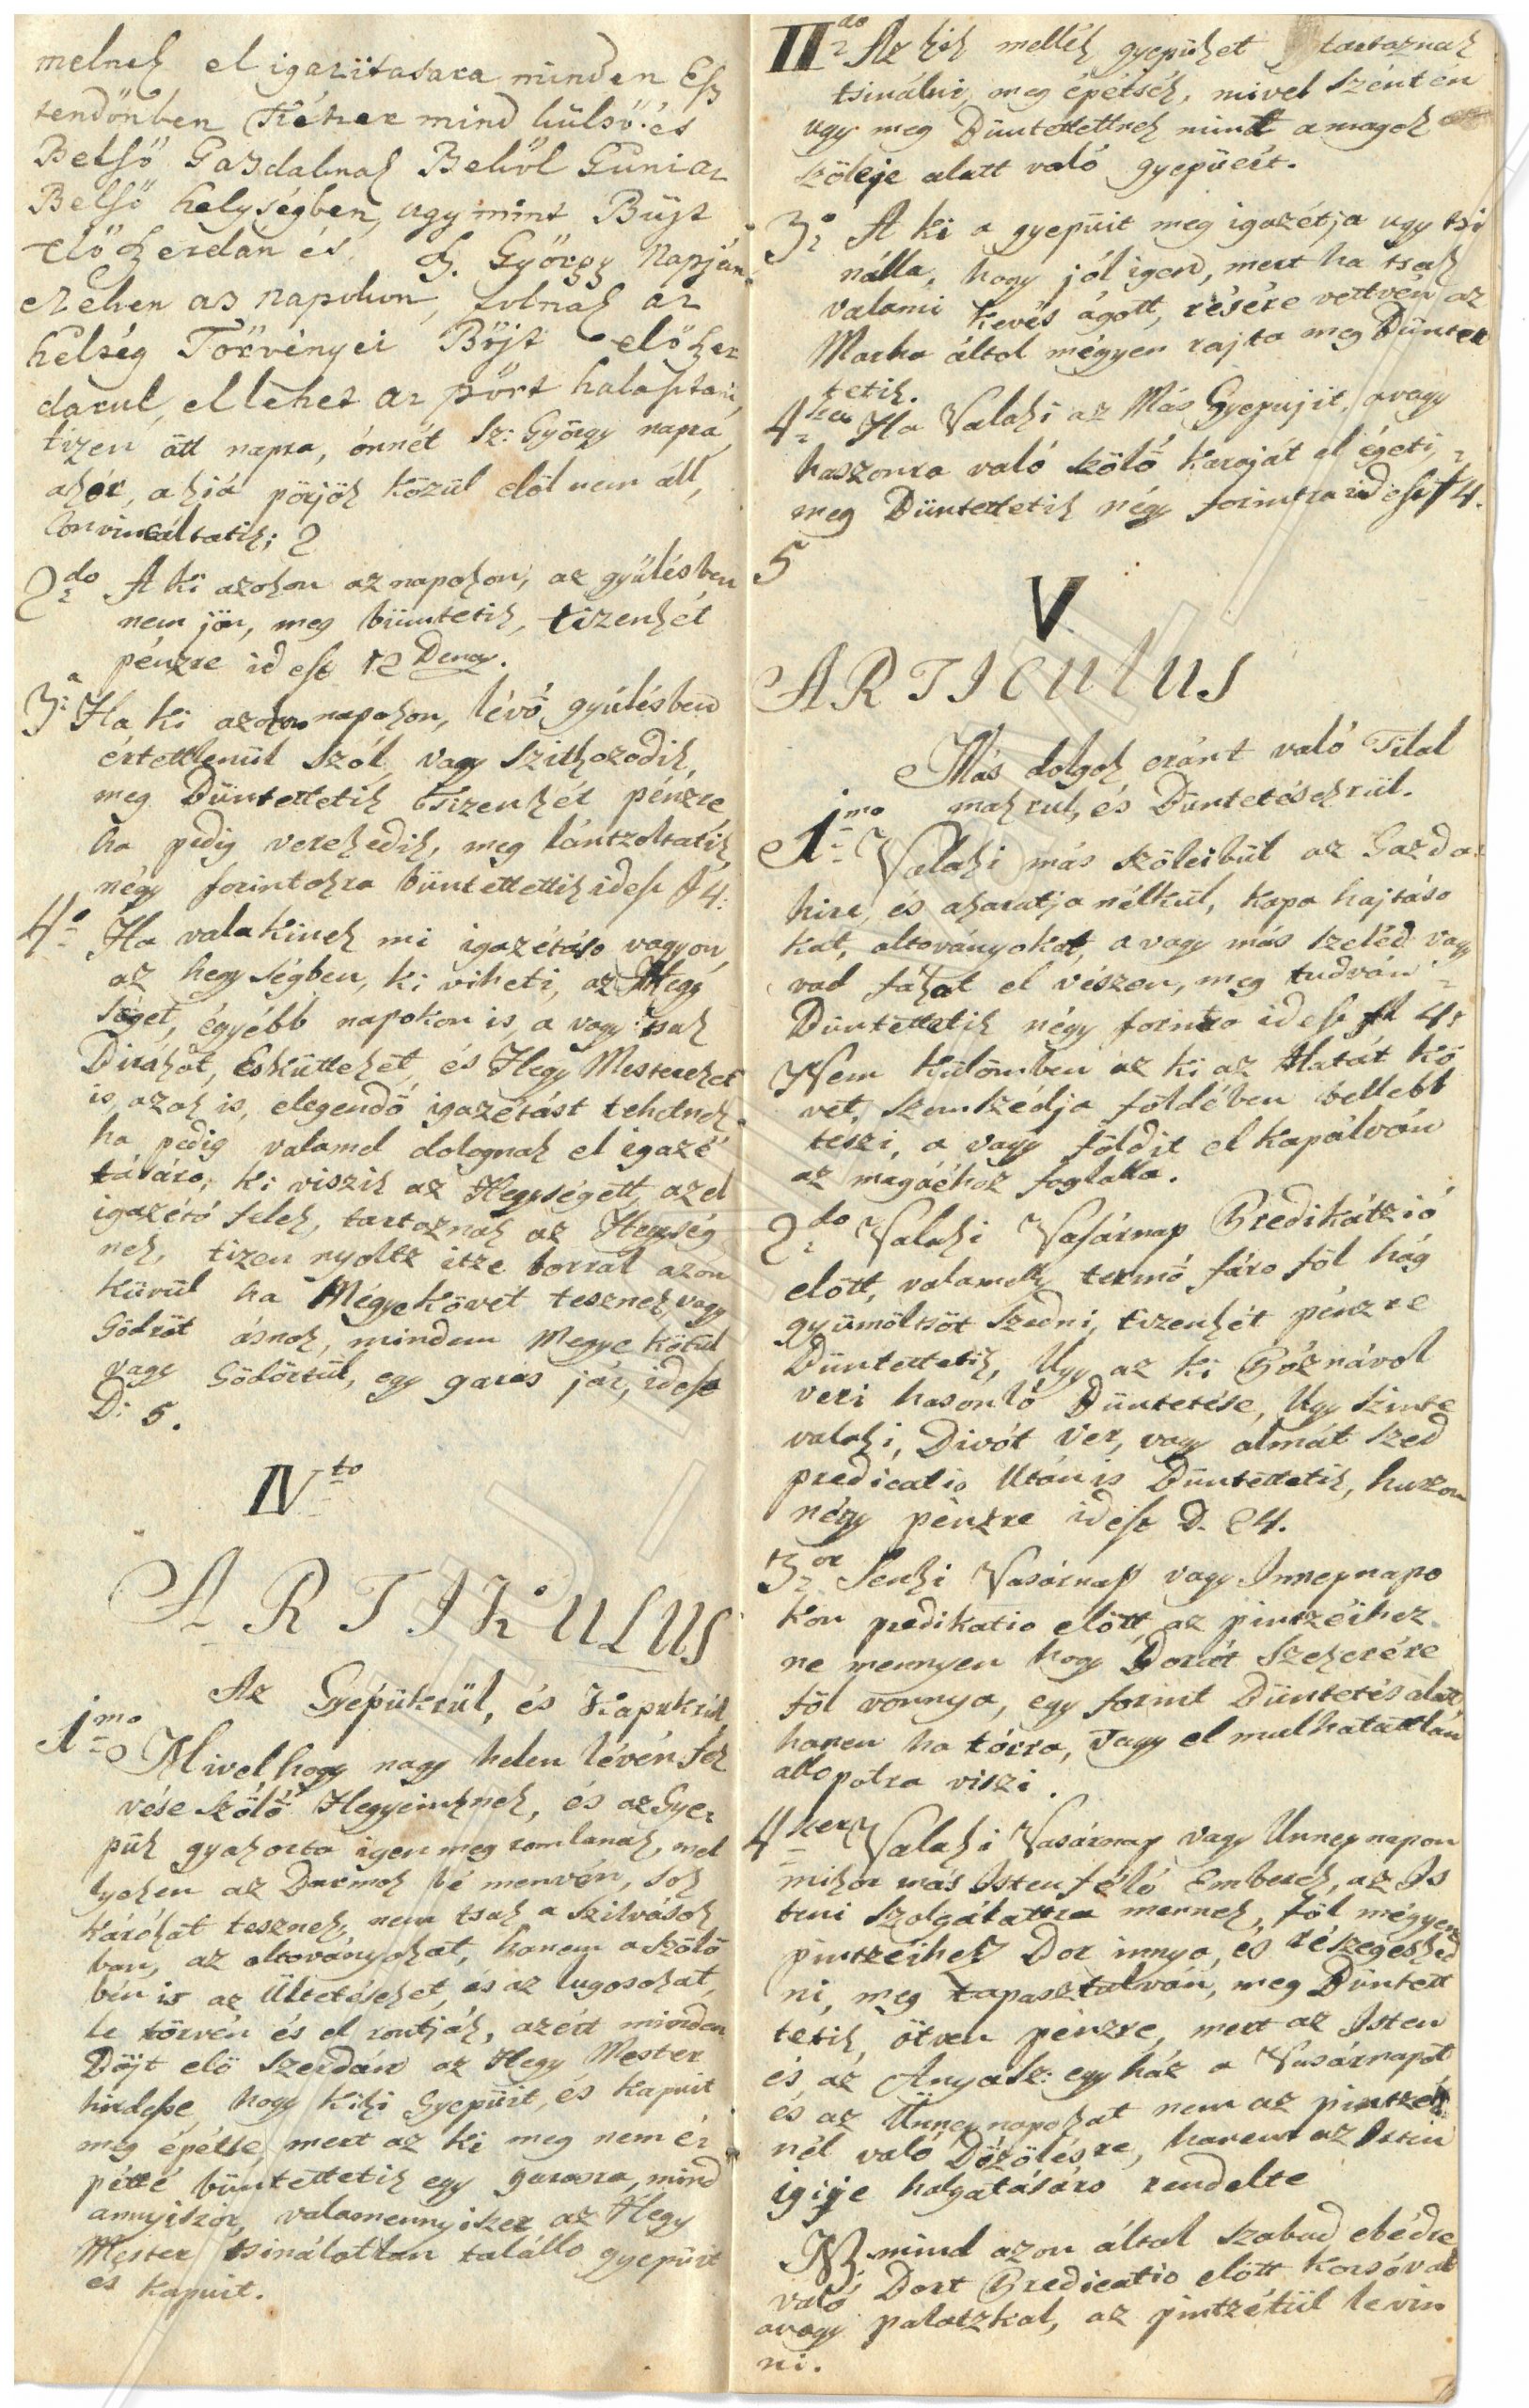 melnek el igazitasara minden Esz
tendőnben Kétzer mind külső és
Belső Gazdalnak Belűl Gűniaz
Belső helységben, ugy mint Büjt
elő Szerdan és S. György Napján
ezeken az napokon, folnak az
helség Törvényei Böjt előszer
darul, ellehet az pört halasztani,
tizen ött napra, onnét Sz: György napra,
akár, a kiá pörjök közül elöl nem áll,
Convincáltatik;
2do A ki azokon az napokon, az gyülésben
nem jön, meg büntetik, tizenkét
pénzre id est 12 Denar.
3a Ha ki azokon napokon, lévő gyülésben
értettlenül szól, vagy szitkozodik,
meg Büntettetik Tizenkét pénzre,
ha pedig verekedik, meg lántzoltatik,
négy forintokra büntettettik id est f 4:
4o Ha valakinek mi igazétása vagyon,
az hegységben, ki viheti, az Hegy
séget, égyébb napokon is, a vagy: tsak
Birákat, Esküttekét, és Hegy Mesterekét
is, azok is, elegendő igazétást tehetnek
ha pedig valamel dolognak el igazé
tására, ki viszik az Hegységett, azel
igazétó felek, tartoznak az Hegység
nek, tizen nyoltz itze borral azon
kűvűl ha Mégye követ tesznek, vagy
Gödröt ásnak, mindem Megye kötül
vagy Gödörtül, egy garas jár, id est
D: 5.
IVto
ARTIKULUS
Az Gyépükrül, és Kapukrúl
1mo Mivel hogy nagy helen lévén fek
vése szőlő Hegyeinknek, és az Gye,
pük gyakorta igen meg romlanak, mel
lyeken az Barmok bé menvén, sok
károkat tesznek, nem tsak a szilvások
ban, az oltoványokat, hanem a szőlő
bén is az Ültetésekét, és az lugosokat,
le törvén és el rontják, azért minden
Böjt elő szerdán az Hegy Mester
hirdesse, hogy kiki Gyepüit, és kapuit
meg épétse, mert az ki meg nem é,
pétté büntettetik egy garasra, mind
annyiszor, valamennyiszer az Hegy
Mester tsinálatlan talállo gyepüit
és kapuit.
IIdo Az kik mellék gyepüket tartoznak
tsinálni, meg épétsék, mivel szentén
ugy meg Büntettettnek mint a magok
szöleje alatt való gyepüért.
3o A ki a gyepüit meg igazétja ugy tsi
nálla, hogy jól igend, mert ha tsak
valami kevés ágott, résére vettvén az
Marha által mégyen rajta meg Büntet
tetik.
4ter Ha Valaki az Más Gyepujit, avagy
haszonra való szőlő karoját el égeti,
meg Büntettetik négy forintra id est f 4.
5
V
ARTICULUS
Más dolgok eránt való Tilal
makrul, és Büntetésekrül.
1mo Valaki más szöleibül az Gazda
hire, és akaratja nélkül, kapa hajtáso
kat, altoványokat, avagy más szeléd vagy
vad fákat el vészen, meg tudván
Büntettetik négy forintra id est f 4:
Nem külömben az ki az Hatát kö
vet, szemszédja földében bellebb
teszi, a vagy földit el kapálván
az magáéhoz foglalta.
2do Valaki Vasárnap Predikátzió
előtt, valamelly termő fára föl hág
gyümöltsöt szedni, tizenkét pénzre
Büntettetik, Ugy az ki Póznával
veri hasonló Büntetése, Ugy szinte
valaki, Diót ver, vagy almát szed
predicatio Után is Büntettetik, huszon
négy pénzre id est D. 24.
3or Senki Vasárnap vagy Innepnapo
kon predikatio előtt az pintzéihez
ne mennyen hogy Borát szekerére
föl vonnya, egy forint Büntetés alatt,
hanem ha tórra, Vagy el mulhatattlan
allapotra viszi.
4ter Valaki Vasárnap vagy Unnep napon
mikor más Isten féló Emberek, az Is
teni szolgálattra mennek, föl mégyen
pintzéihez Bor innya, és részegesked
ni, meg tapasztalván, meg Büntett
tetik, ötven pénzre, mert az Isten
és az Anya Sz: egyház a Vasárnapot
és az Ünnepnapokat nem az pintzék
nél való Dőzölésre, hanem az Isten
igije halgatására rendelte
NB mind azon által szabad ebédre
való Bort Predicatio előtt Korsóval
avagy palatzkal, az pintzétül le vin
ni.